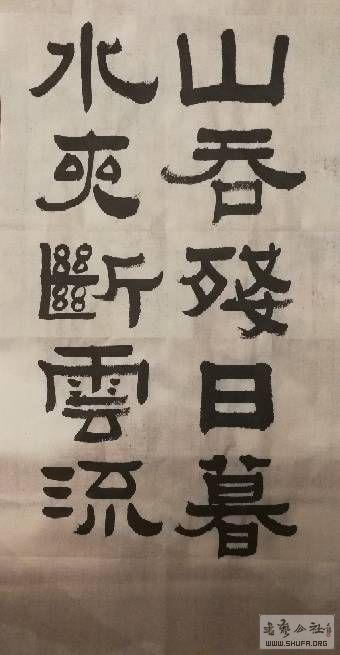 山吞殘日暮
水夾斷雲流
书艺公社
WWW.SHUFA.ORG